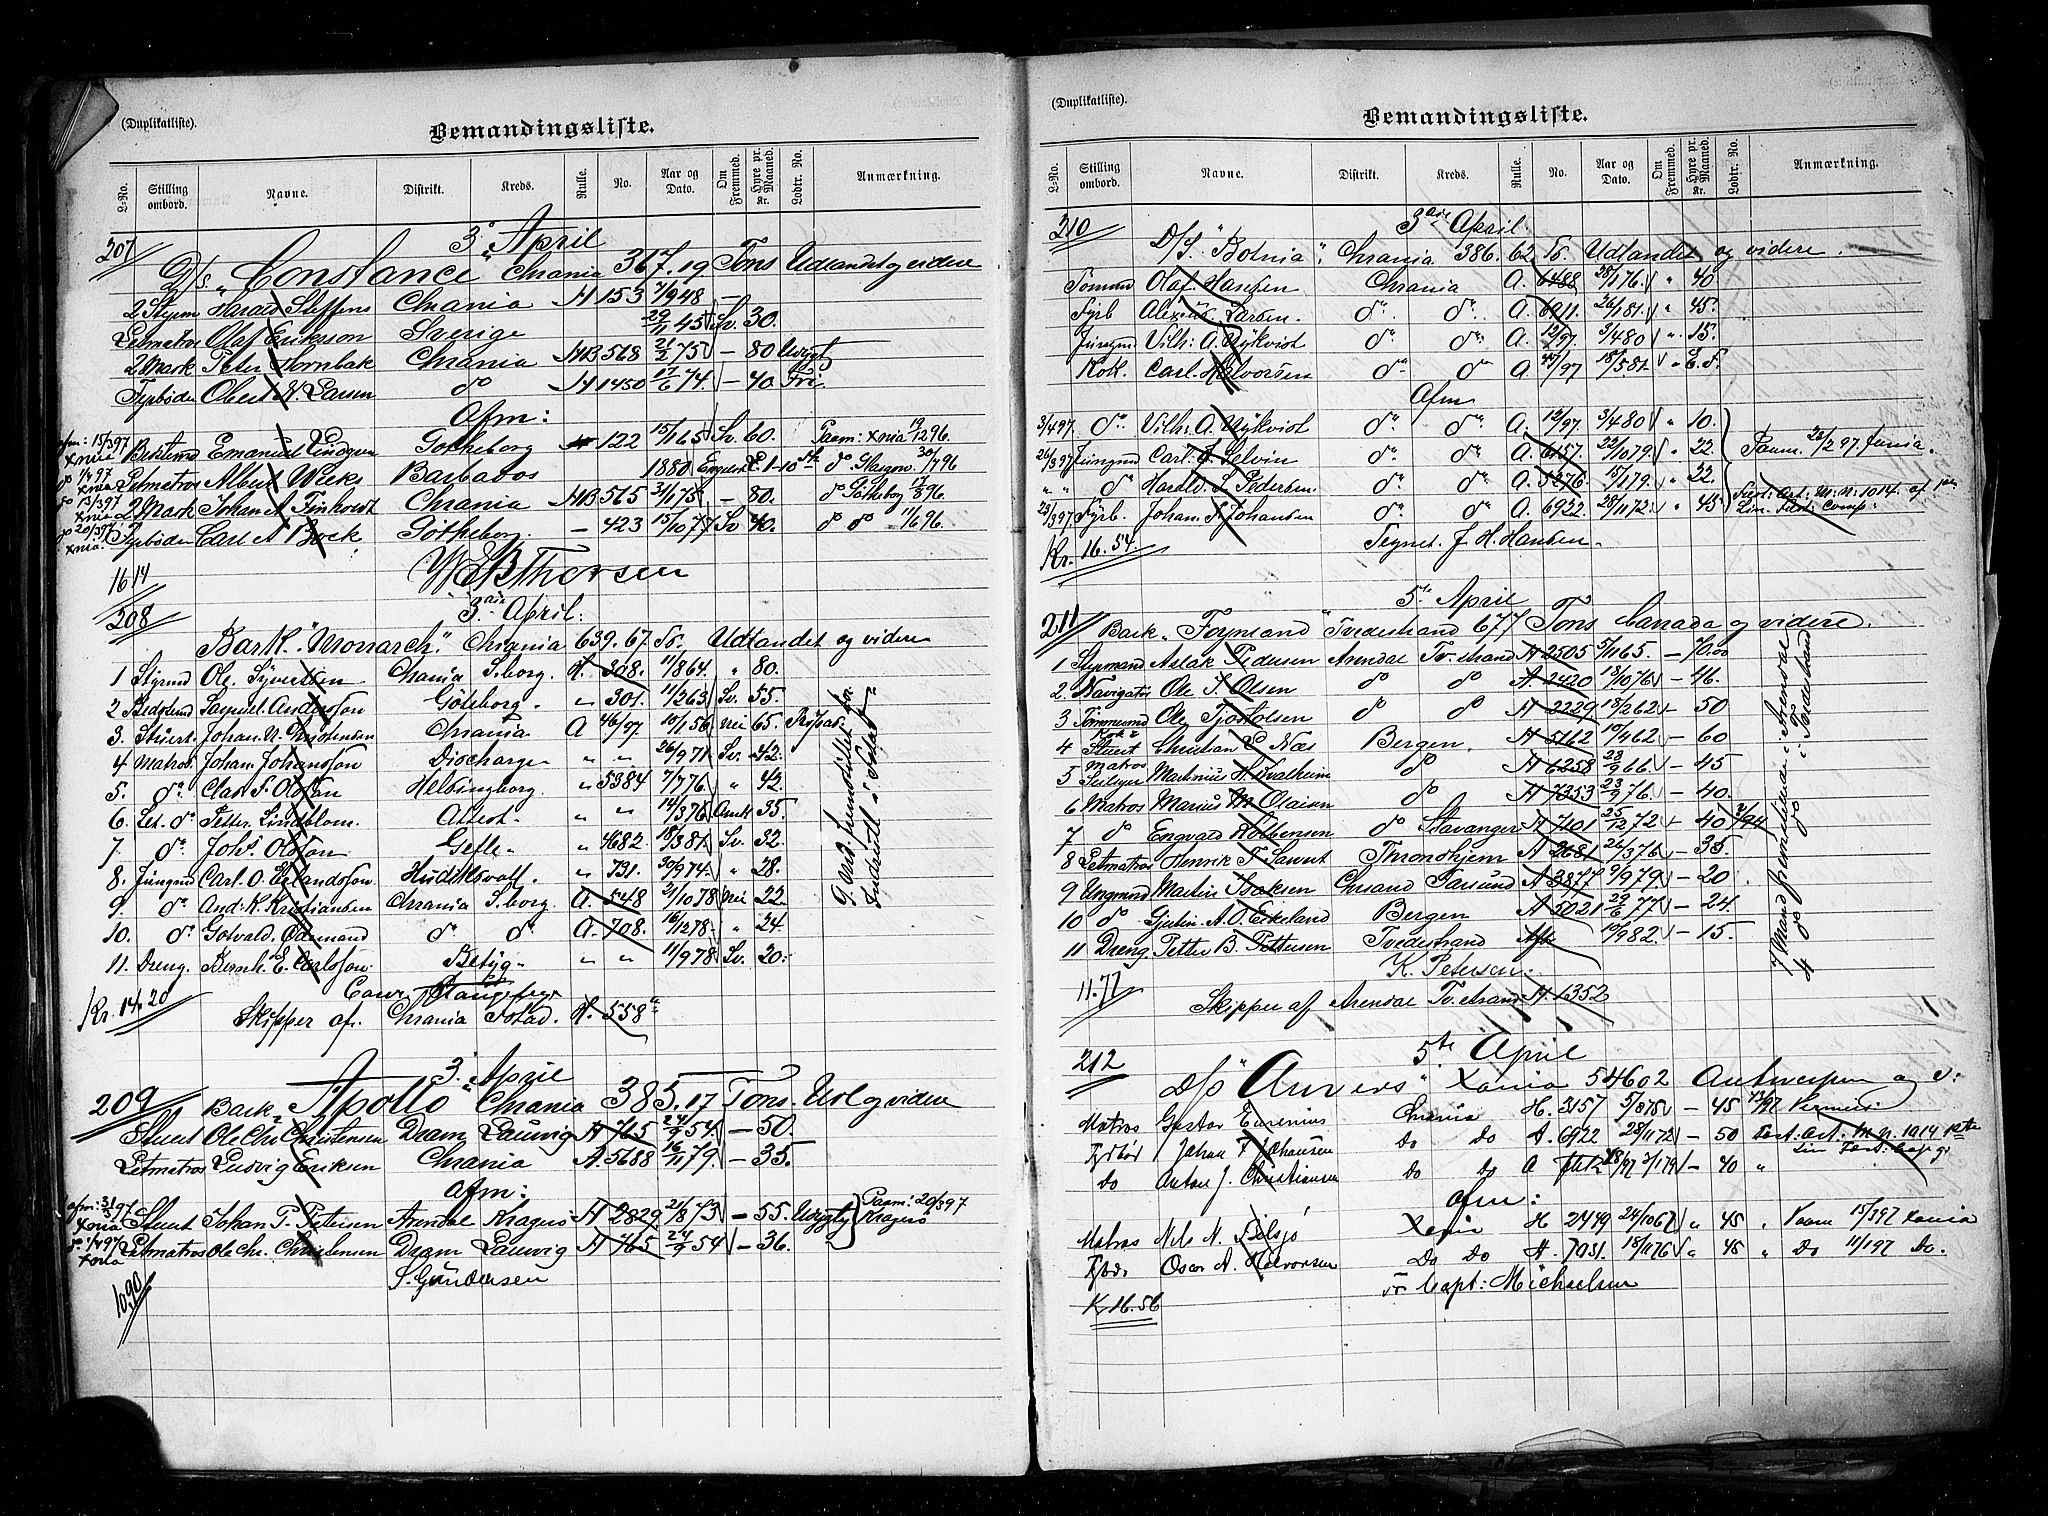 (Duplikatliste).
Bemandingsliste.
L.-No. Stilling ombord. Navne. Distrikt. Kreds. Rulle. No. Aar og Dato. Om Fremmed. Hyre pr. Maaned. Kr. Lodtr. No. Anmærkning.
207 3 April
D/s. "Constance Chrania 367.19 Tons Udlandet og videre
2 Styrm Harald Steffens Chrania H 153 7/9 48 —
Letmatros Olaf Eriksson Sverige 29/11 45 Sv. 30.
2 Mask Peter Hornbæk Chrania MB 568 21/2 75 — 80 Udygt
Fyrbøder Obert N. Larsen do H 1450 17/6 74. — 40 Fri
Afm:
afm: 15/3 97 Xnia Bedstmd Emanuel Lindgren Gotheborg 122 15/1 65 Sv. 60. Paam: Xnia 19/12 96.
do 1/4 97 Xnia Letmatros Albert Weeks Barbados 1880 Engelsk £ 1-10 do Glasgow 30/7 96
do 13/3 97 Xnia 2 Mask Johan A Finholdt Chrania MB 565 31/1 75 — 80. do Gotheborg 17/8 96.
do 20/3 97 Xnia. Fyrbøder Carl A Bock Gotheborg. — 423 15/10 77 Sv 40. do do 11/6 96.
W E B Thorsen
1614
208 3die April.
Bark. "Monarch." Chrania 639.67. To. Udlandet og videre
1 Styrmd Ole Syvertsen Chrania S.borg. H. 308. 11/8 64. " 80.
2 Bedstmd Samuel Andersson Göteborg. " 301. 11/2 63. Sv. 55.
3. Stuert. Johan N. Christensen Chrania A 46/97 10/1 56 nei 65.
4 Matros. Johan Johansson Discharge " " 26/9 71. Sv. 42.
5. do. Claes F. Olsson Helsingborg. " 5384 7/7 76. " 42.
6. Let. do Petter Lindblom. Attest. " " 14/3 76 35.
7. do. Johs. Olsson Gefle. " 4682. 18/3 81. Sv. 32.
8. Jungmd Carl. O. Erlandsson Hudiksvall. " 731. 30/9 74. " 28.
9. do. And. K. Kristiansen Chrania S.borg. A. 548 21/10 78 nei 22.
10. do. Gotvald. Ødemand do. do. A. 708. 16/12 78. " 24.
11. Dreng. Bernh. E. Carlsson. Betyg. " " 11/9 78 Sv. 20.
Kr. 14.20
Skipper af. Chrania H. 558
209 3. April
Bark "Apollo" Chrania 385.17 Tons. Udl og videre
Stuert Ole Chr. Christensen Dram Laurvig H 765 24/9 54. — 50.
Letmatros Ludvig Eriksen Chrania A. 5688 16/11 79. — 35.
Afm:
afm: 31/3 97 Xnia Stuert Johan P. Petersen Arendal Kragerø H 2829 21/8 73 — 55. Udygty Paam: 20/3 97 Kragerø
do 1/4 97 Xnia Letmatros Ole Chr. Christensen Dram Laurvig H 765 24/9 54 — 36.
S. Gundersen
10.90
(Duplikatliste).
Bemandingsliste.
L.-No. Stilling ombord. Navne. Distrikt. Kreds. Rulle. No. Aar og Dato. Om Fremmed. Hyre pr. Maaned. Kr. Lodtr. No. Anmærkning.
210 3die April.
D/S. "Botnia". Chrania 386.62 To. Udlandet og videre.
Tømmd Olaf Hansen Chrania A. 6488 28/1 76. " 40
Fyrb Alex. Larsen. do. do. A. 6911. 26/1 81. " 45.
Jungmd Vilh: A. Nykvist do. do. A. 12/97. 3/4 80 " 15.
Kok. Carl. Halvorsen do. do. A. 44/97 18/5 81.
Afm
3/4 97. do. Vilh: A. Nykvist do. do. A. 12/97. 3/4 80 " 10.
26/3 97 Jungmd Carl. J. Selvin do. do. A. 6157. 22/10 79. " 22. Paam. 26/2 97. Xania.
" " do Harald. L. Pedersen. do. do. A. 5376 15/1 79. " 22.
23/3 97 Fyrb. Johan. F. Johansen do. do. A. 6922 28/11 72. " 45
Kr. 16.54. Tegnet. J. H. Hansen.
211 5te April
Bark "Foynland" Tvedestrand 677 Tons Canada og videre.
1 Styrmand Aslak Pedersen Arendal Tv.strand H 2505 5/11 65. — 70.00
2. Navigatør Ole T. Olsen do do A. 2420 18/10 76 — 46.
3 Tømmermd Ole Tjostolsen do do H 2229 15/2 62 — 50
4 Kok & Stuert Christian E. Næs Bergen. H 5162 10/4 62 — 60
5 Matros Seilsyer Martinius H. Kvalheim do H 6258 28/9 66. — 45
6 Matros Marius M. Olaisen do H 7353 23/9 76. — 40.
7 do Engvald Kolbensen do Stavanger H 7101 25/12 72 — 40
8 Letmatros Henrik F. Sawert Throndhjem A 2681 26/3 76 — 35.
9 Ungmand Martin Isaksen Chrsand Farsund A 3877 9/9 79 — 20
10 do Gjertin A. O. Eikeland Bergen A 5021 29/6 77 — 24.
11 Dreng Petter B. Pettersen Tvedestrand Afk 10/9 82. — 15.
7 Mand fremstillede i Arendal
4 do do i Tvedestrand
K. Petersen.
11.77 Skipper af Arendal Tv.strand H. 1352
212 5te April
D/s "Anvers" Xania 546 02 Antwerpen og v:
Matros Gustav Eugenius Chrania H. 3157 5/8 75 — 45
Fyrbød Johan F. Johansen Do Do A. 6922 28/11 72 — 50
Do Anton J. Christiansen Do Do A 3/1 79 — 40 "
Afm:
Matros Nels N. Xania H 2479 24/10 67 " 45 " Paam 15/3 97 Xania
Fyrbd. Oscar A. Halvorsen Do Do A. 7031. 18/11 76 " 45 " Do 11/1 97 Do.
Capt: Michaelsen
Kr 16.56